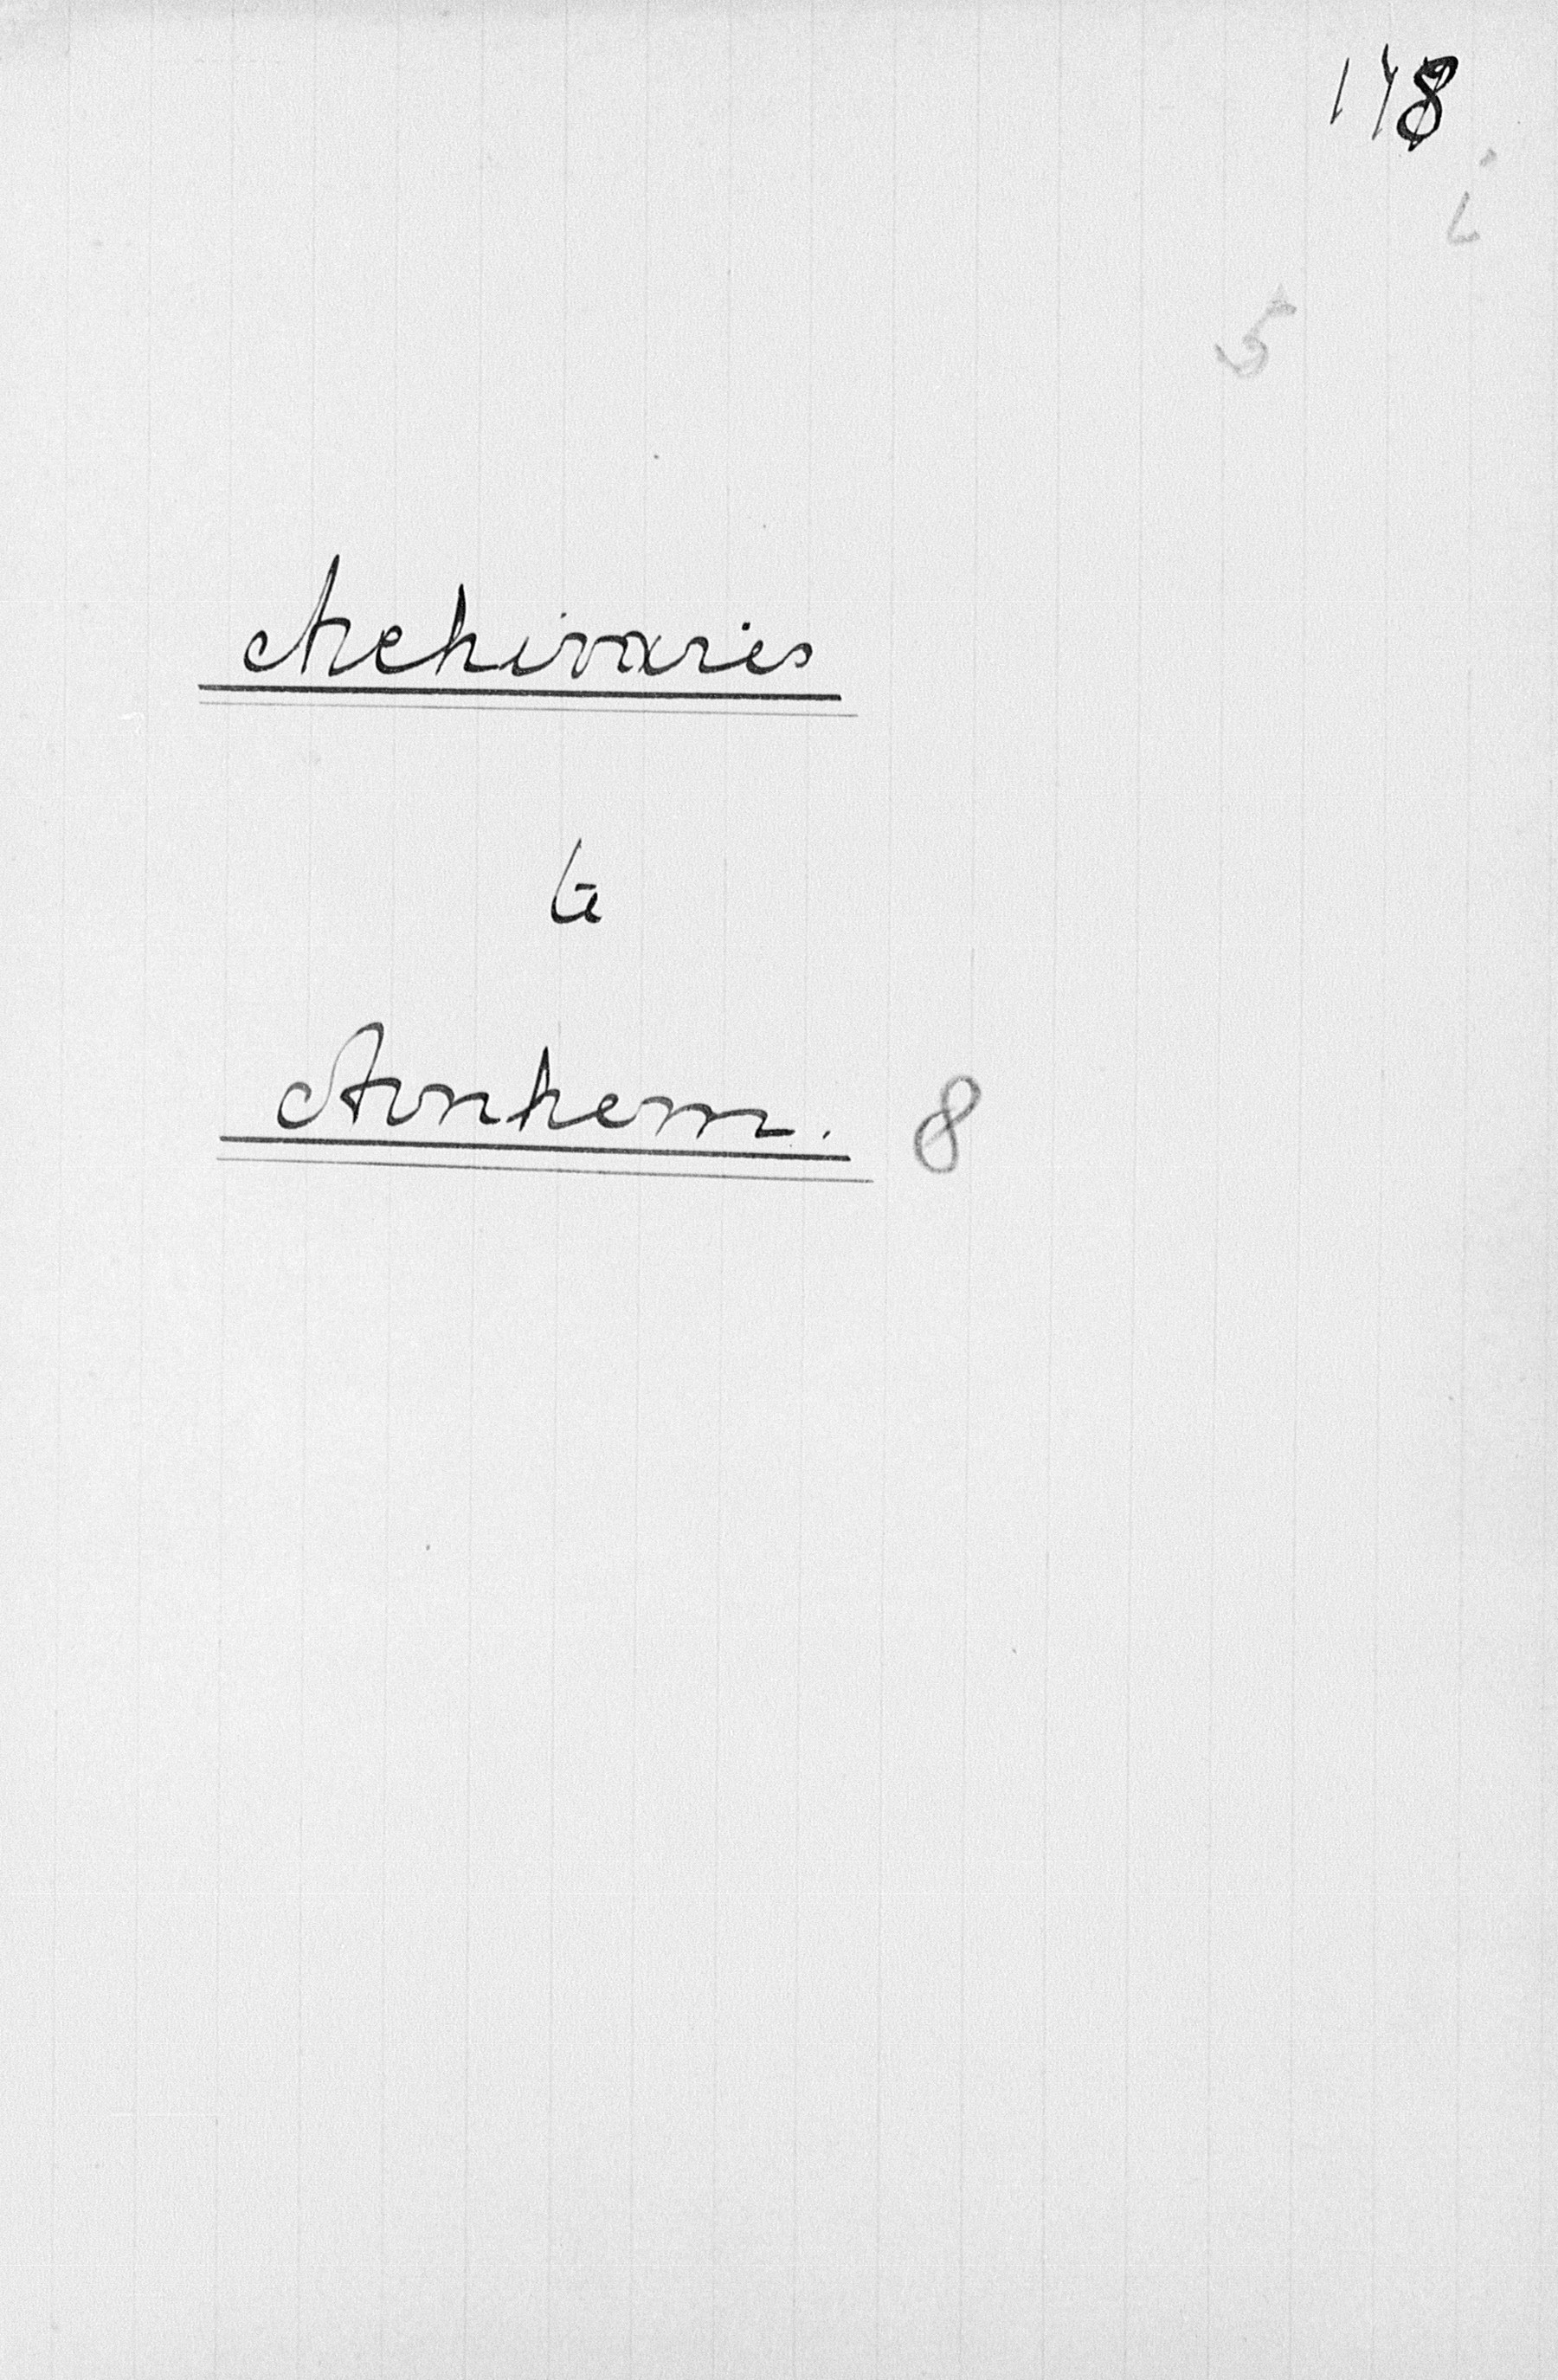 118
i
5
Archivaris
te
Arnhem. 8